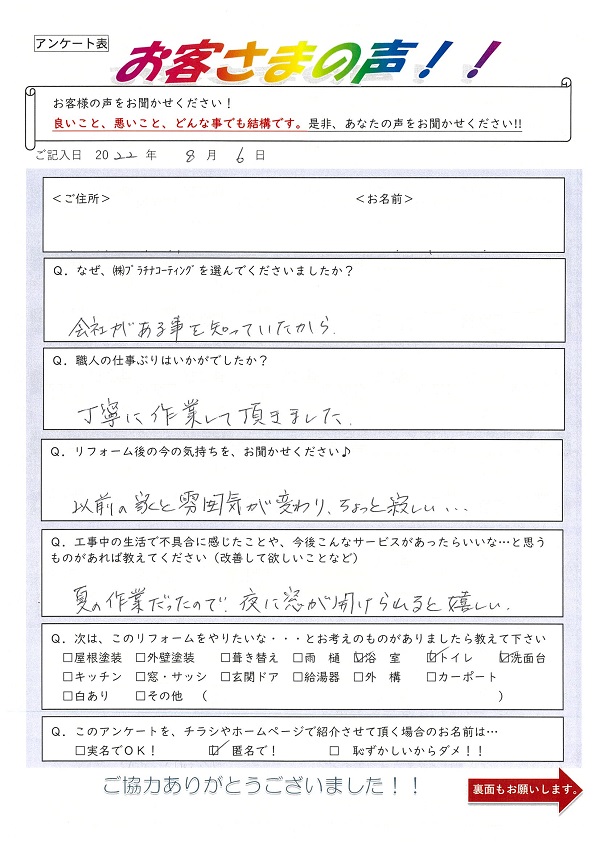 アンケート表
お客さまの声！！
お客様の声をお聞かせください！
良いこと、悪いこと、どんな事でも結構です。是非、あなたの声をお聞かせください!!
ご記入日 2022 年 8 月 6 日
＜ご住所＞ ＜お名前＞
Q．なぜ、㈱ﾌﾟﾗﾁﾅｺｰﾃｨﾝｸﾞを選んでくださいましたか？
会社がある事を知っていたから.
Q．職人の仕事ぶりはいかがでしたか？
丁寧に作業して頂きました.
Q．リフォーム後の今の気持ちを、お聞かせください♪
以前の家と雰囲気が変わり、ちょっと寂しい...
Q．工事中の生活で不具合に感じたことや、今後こんなサービスがあったらいいな…と思う
ものがあれば教えてください（改善して欲しいことなど）
夏の作業だったので、夜に窓が開けられると嬉しい.
Q．次は、このリフォームをやりたいな・・・とお考えのものがありましたら教えて下さい
□屋根塗装 □外壁塗装 □葺き替え □雨 樋 ☑浴 室 ☑トイレ ☑洗面台
□キッチン □窓・サッシ □玄関ドア □給湯器 □外 構 □カーポート
□白あり □その他 （ ）
Q．このアンケートを、チラシやホームページで紹介させて頂く場合のお名前は…
□実名でOK！ ☑ 匿名で！ □ 恥ずかしいからダメ！！
ご協力ありがとうございました！！
裏面もお願いします。